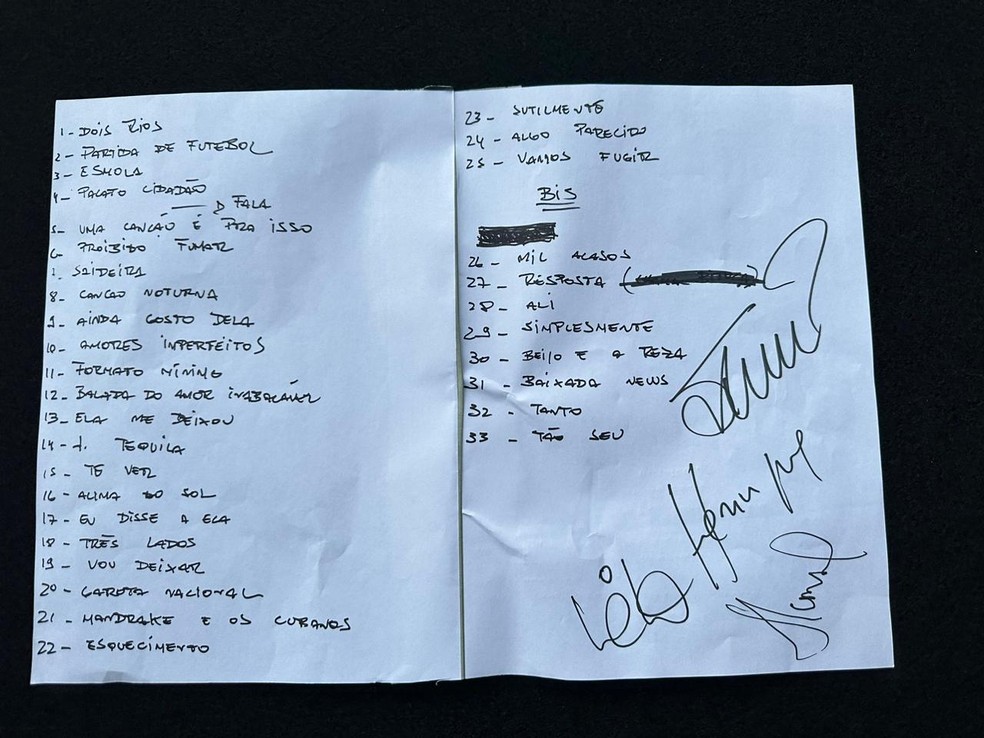 1 - DOIS RIOS
2 - PARTIDA DE FUTEBOL
3 - ESMOLA
4 - PACATO CIDADÃO
→ FALA
5 - UMA CANÇÃO É PRA ISSO
6 - PROIBIDO FUMAR
7 - SAIDEIRA
8 - CANÇÃO NOTURNA
9 - AINDA GOSTO DELA
10 - AMORES IMPERFEITOS
11 - FORMATO MÍNIMO
12 - BALADA DO AMOR INABALÁVEL
13 - ELA ME DEIXOU
14 - J. TEQUILA
15 - TE VER
16 - ACIMA DO SOL
17 - EU DISSE A ELA
18 - TRÊS LADOS
19 - VOU DEIXAR
20 - GAROTA NACIONAL
21 - MANDRAKE E OS CUBANOS
22 - ESQUECIMENTO
23 - SUTILMENTE
24 - ALGO PARECIDO
25 - VAMOS FUGIR
BIS
26 - MIL ACASOS
27 - RESPOSTA
28 - ALI
29 - SIMPLESMENTE
30 - BEIJO E A REZA
31 - BAIXADA NEWS
32 - TANTO
33 - TÃO SEU